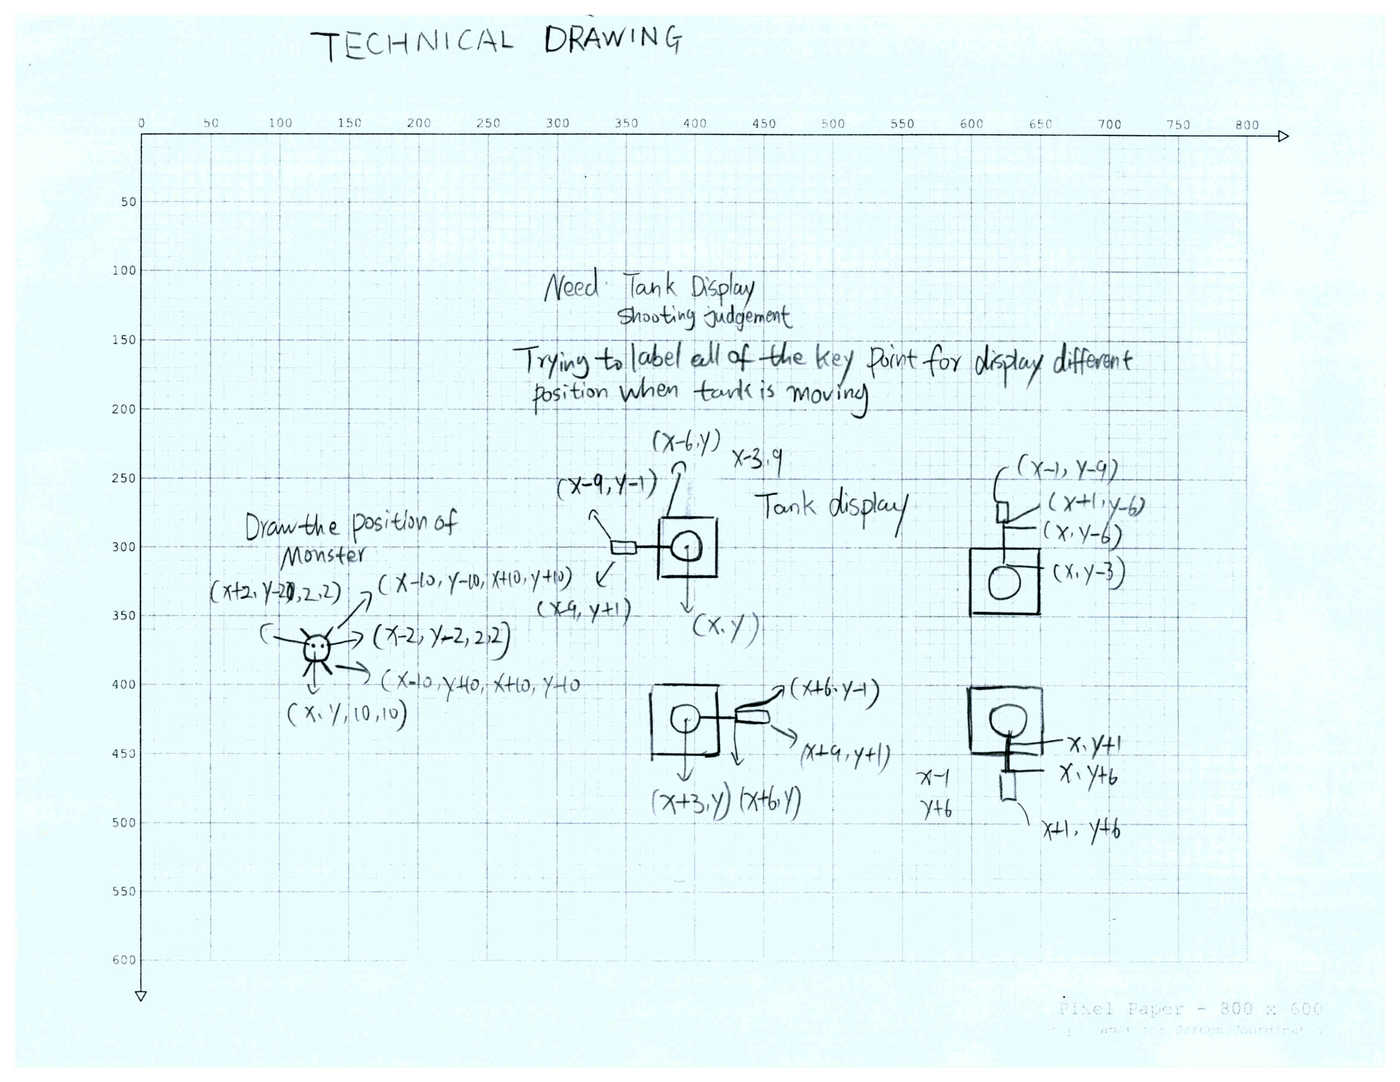 TECHNICAL DRAWING
0 50 100 150 200 250 300 350 400 450 500 550 600 650 700 750 800
50
100
150
200
250
300
350
400
450
500
550
600
Need Tank Display
Shooting judgement
Trying to label all of the key point for display different
position when tank is moving
(x-6,y)
x-3,9
(x-9,y-1)
Tank display
(x-9,y+1)
(x,y)
(x-1, y-9)
(x+1,y-6)
(x,y-6)
(x,y-3)
Draw the position of
Monster
(x+2, y-2,2,2)
(x-10, y-10, x+10, y+10)
(x-2, y-2, 2,2)
(x-10, y+10, x+10, y+10
(x,y,10,10)
(x+6,y-1)
(x+9,y+1)
(x+3,y) (x+6,y)
x,y+1
x,y+6
x-1
y+6
x+1, y+6
Pixel Paper - 800 x 600